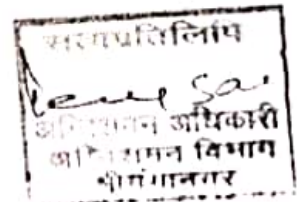 सत्यप्रतिलिपि
अग्निशमन अधिकारी
अग्निशमन विभाग
श्रीगंगानगर